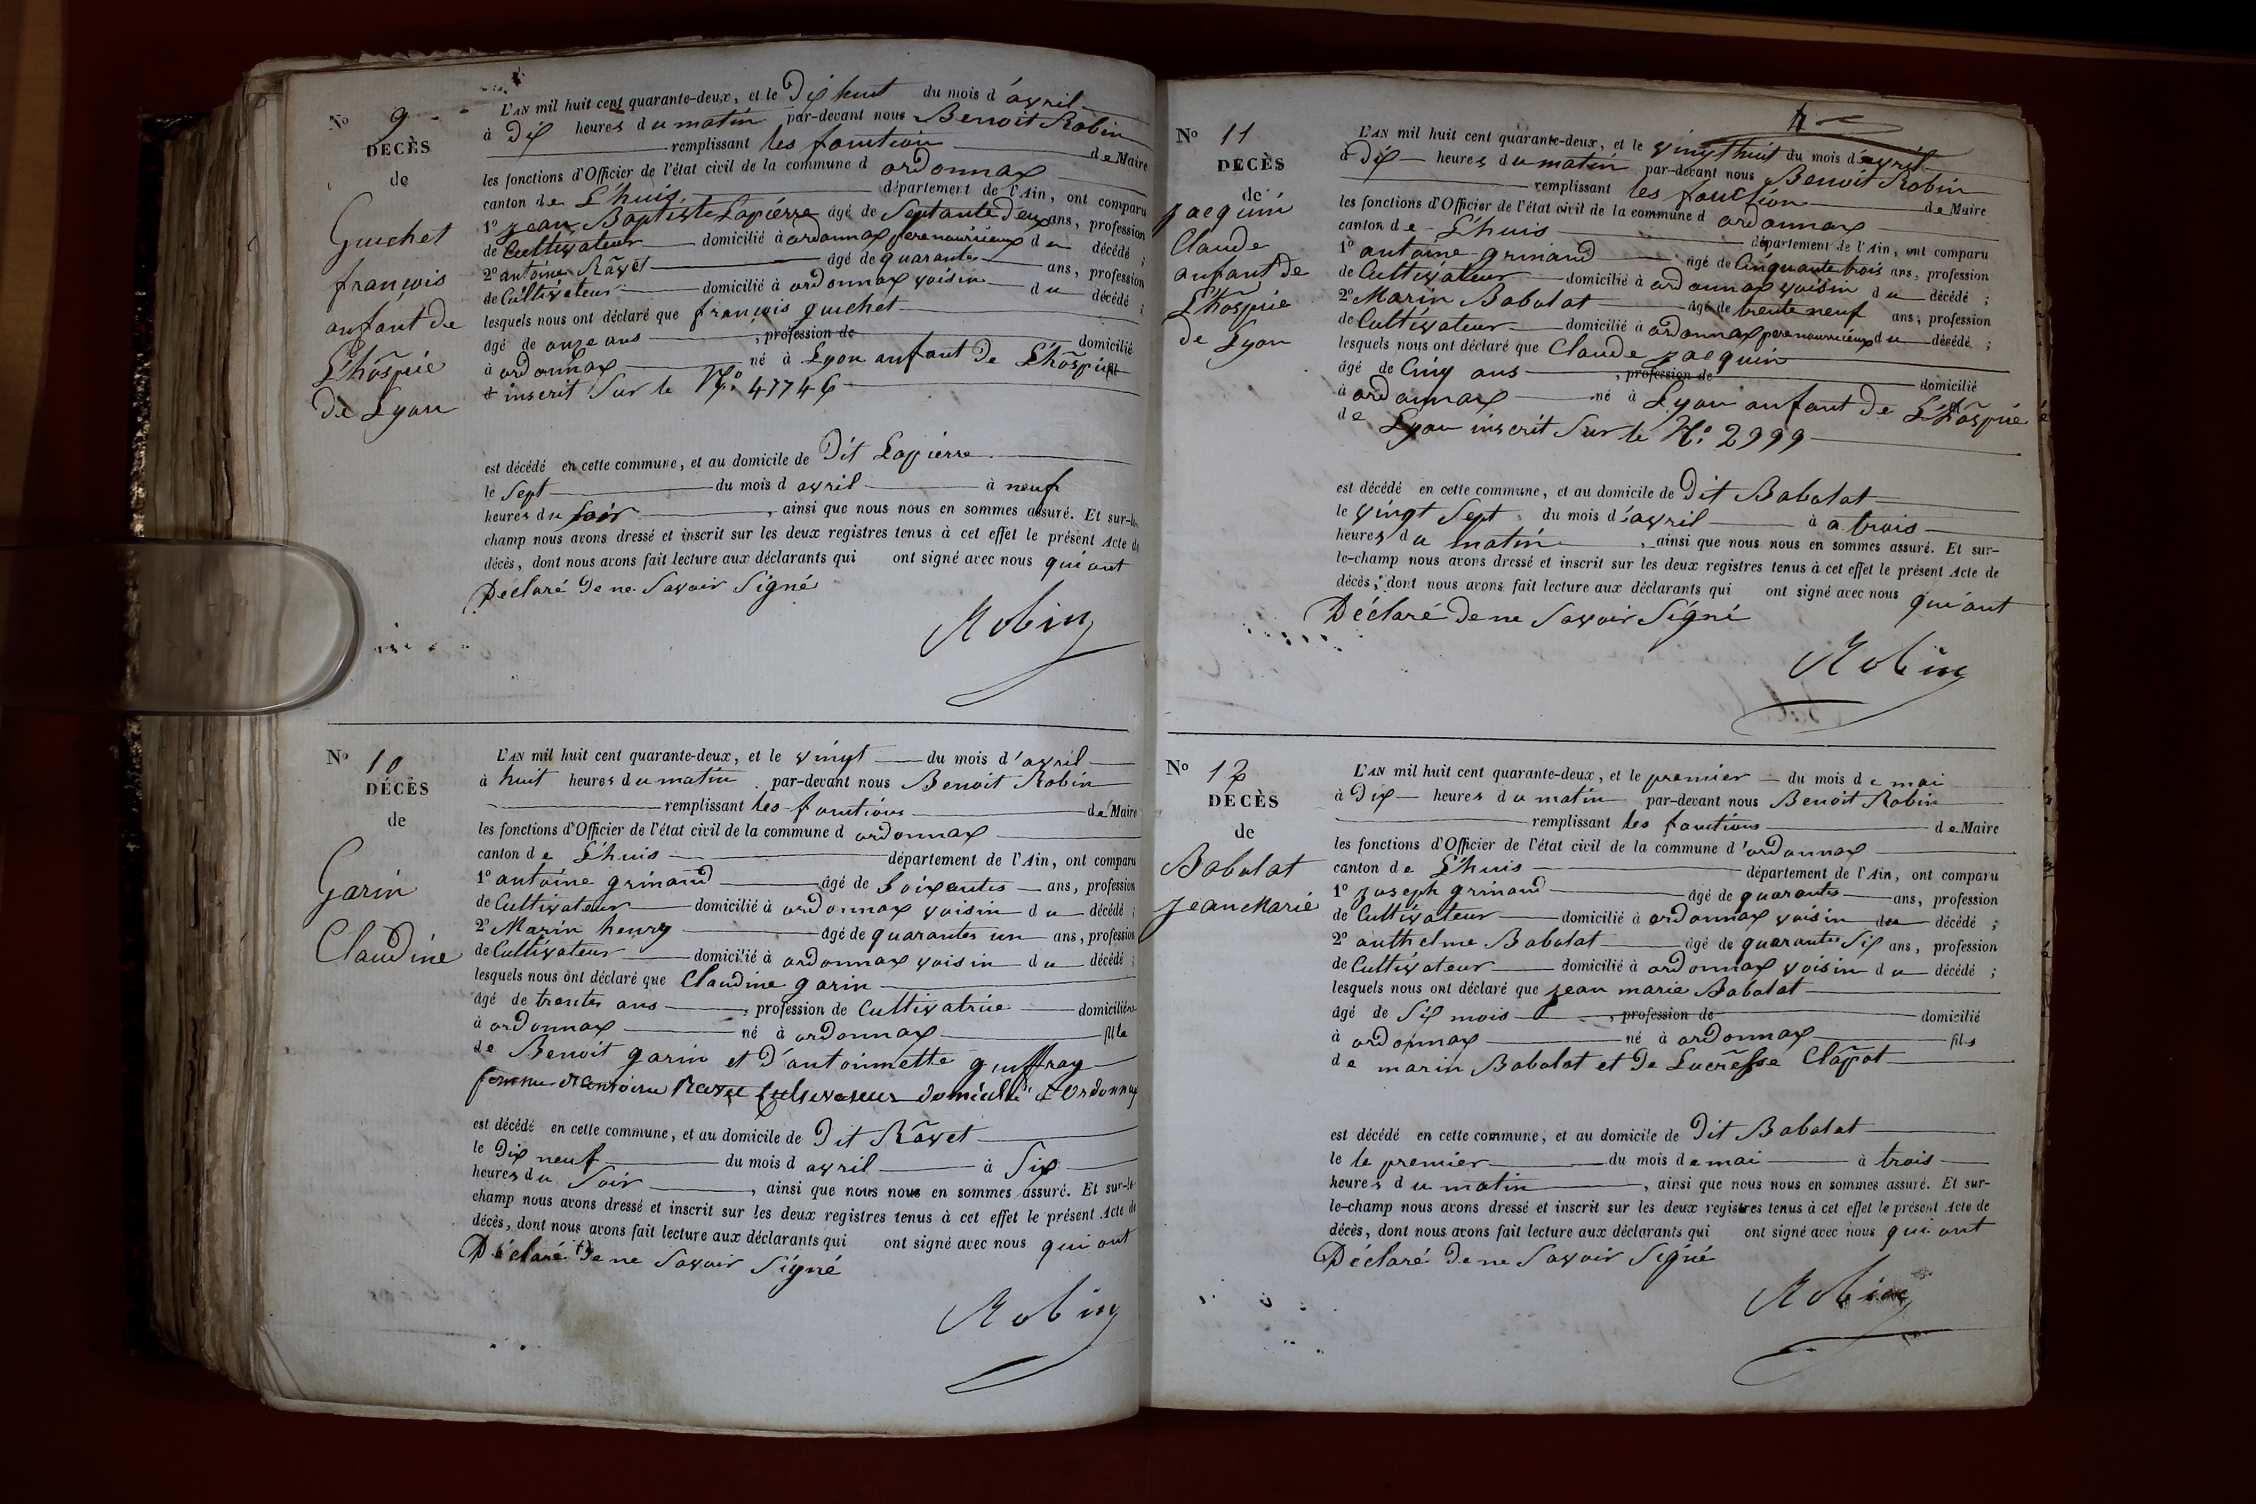 No 9
DÉCÈS
de
Guichet
françois
anfant de
L'hôspice
de Lyon
L'AN mil huit cent quarante-deux, et le Dix huit du mois d'avril
à Dix heures du matin par-devant nous Benoit Robin
remplissant les fonction de Maire
les fonctions d'Officier de l'état civil de la commune d ordonnax
canton de L'huis département de l'Ain, ont comparu
1º jean Baptiste Lapierre âgé de Septante deux ans, profession
de Cultivateur domicilié à ordonnax pere nourricieux du décédé ;
2º antoine Râvet âgé de quarante ans, profession
de Cultivateur domicilié à ordonnax voisin du décédé ;
lesquels nous ont déclaré que françois guichet
âgé de onze ans , profession de domicilié
à ordonnax né à Lyon anfant de L'hôspice
et inscrit Sur le Nº 41746
est décédé en cette commune, et au domicile de Dit Lapierre
le Sept du mois d avril à neuf
heures du soir , ainsi que nous nous en sommes assuré. Et sur-le-
champ nous avons dressé et inscrit sur les deux registres tenus à cet effet le présent Acte de
décès, dont nous avons fait lecture aux déclarants qui ont signé avec nous qui ont
Déclaré de ne Savoir Signé
Robin
No 10
DÉCÈS
de
Garin
Claudine
L'AN mil huit cent quarante-deux, et le vingt du mois d'avril
à huit heures du matin par-devant nous Benoit Robin
remplissant les fonctions de Maire
les fonctions d'Officier de l'état civil de la commune d ordonnax
canton de L'huis département de l'Ain, ont comparu
1º antoine grinand âgé de Soixantes ans, profession
de Cultivateur domicilié à ordonnax voisin du décédé ;
2º Marin henry âgé de quarantes un ans, profession
de Cultivateur domicilié à ordonnax voisin du décédé ;
lesquels nous ont déclaré que Claudine garin
âgé de trentes ans , profession de Cultivatrice domiciliée
à ordonnax né à ordonnax fille
de Benoit garin et d'antoinette guffray
femme d'antoine Ravet Cultivateur domicilié à Ordonnax
est décédé en cette commune, et au domicile de Dit Râvet
le Dix neuf du mois d avril à Six
heures du Soir , ainsi que nous nous en sommes assuré. Et sur-le-
champ nous avons dressé et inscrit sur les deux registres tenus à cet effet le présent Acte de
décès, dont nous avons fait lecture aux déclarants qui ont signé avec nous qui ont
Déclaré De ne Savoir Signé
Robin
4
No 11
DÉCÈS
de
jacquin
Claude
anfant de
L'hôspice
de Lyon
L'AN mil huit cent quarante-deux, et le vingt huit du mois d'avril
à Dix heures du matin par-devant nous Benoit Robin
remplissant les fonction de Maire
les fonctions d'Officier de l'état civil de la commune d ordonnax
canton de L'huis département de l'Ain, ont comparu
1º antoine grinand âgé de Cinquante trois ans, profession
de Cultivateur domicilié à ordonnax voisin du décédé ;
2º Marin Babolat âgé de trente neuf ans, profession
de Cultivateur domicilié à ordonnax pere nourricieux du décédé ;
lesquels nous ont déclaré que Claude jacquin
âgé de Cinq ans , profession de domicilié
à ordonnax né à Lyon anfant de L'hôspice
de Lyon inscrit Sur le Nº 2999
est décédé en cette commune, et au domicile de Dit Babolat
le vingt Sept du mois d'avril à a trois
heures du matin , ainsi que nous nous en sommes assuré. Et sur-
le-champ nous avons dressé et inscrit sur les deux registres tenus à cet effet le présent Acte de
décès, dont nous avons fait lecture aux déclarants qui ont signé avec nous qui ont
Déclaré de ne Savoir Signé
Robin
No 12
DÉCÈS
de
Babolat
jean Marie
L'AN mil huit cent quarante-deux, et le premier du mois de mai
à Dix heures du matin par-devant nous Benoit Robin
remplissant les fonctions de Maire
les fonctions d'Officier de l'état civil de la commune d'ordonnax
canton de L'huis département de l'Ain, ont comparu
1º joseph grinand âgé de quarante ans, profession
de Cultivateur domicilié à ordonnax voisin du décédé ;
2º anthelme Babolat âgé de quarantes Six ans, profession
de Cultivateur domicilié à ordonnax voisin du décédé ;
lesquels nous ont déclaré que jean marie Babolat
âgé de Six mois , profession de domicilié
à ordonnax né à ordonnax fils
de marin Babolat et de Lucrêsse Clâpot
est décédé en cette commune, et au domicile de Dit Babolat
le le premier du mois de mai à trois
heures du matin , ainsi que nous nous en sommes assuré. Et sur-
le-champ nous avons dressé et inscrit sur les deux registres tenus à cet effet le présent Acte de
décès, dont nous avons fait lecture aux déclarants qui ont signé avec nous qui ont
Déclaré de ne Savoir Signé
Robin